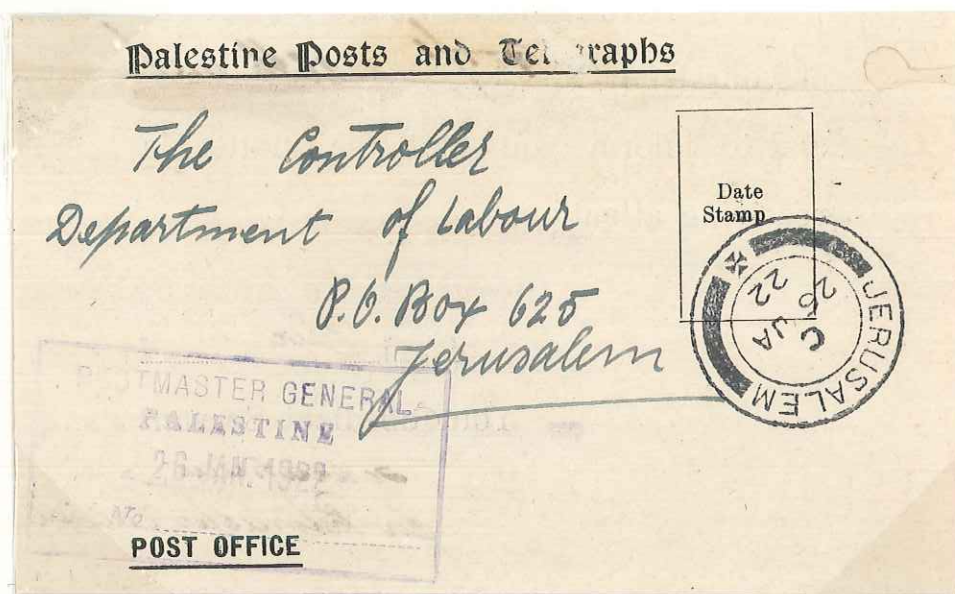 Palestine Posts and Telegraphs
The Controller
Department of Labour
P.O. Box 625
Jerusalem
Date
Stamp
JERUSALEM
C
26 JA
22
POSTMASTER GENERAL
PALESTINE
26 JAN
No
POST OFFICE